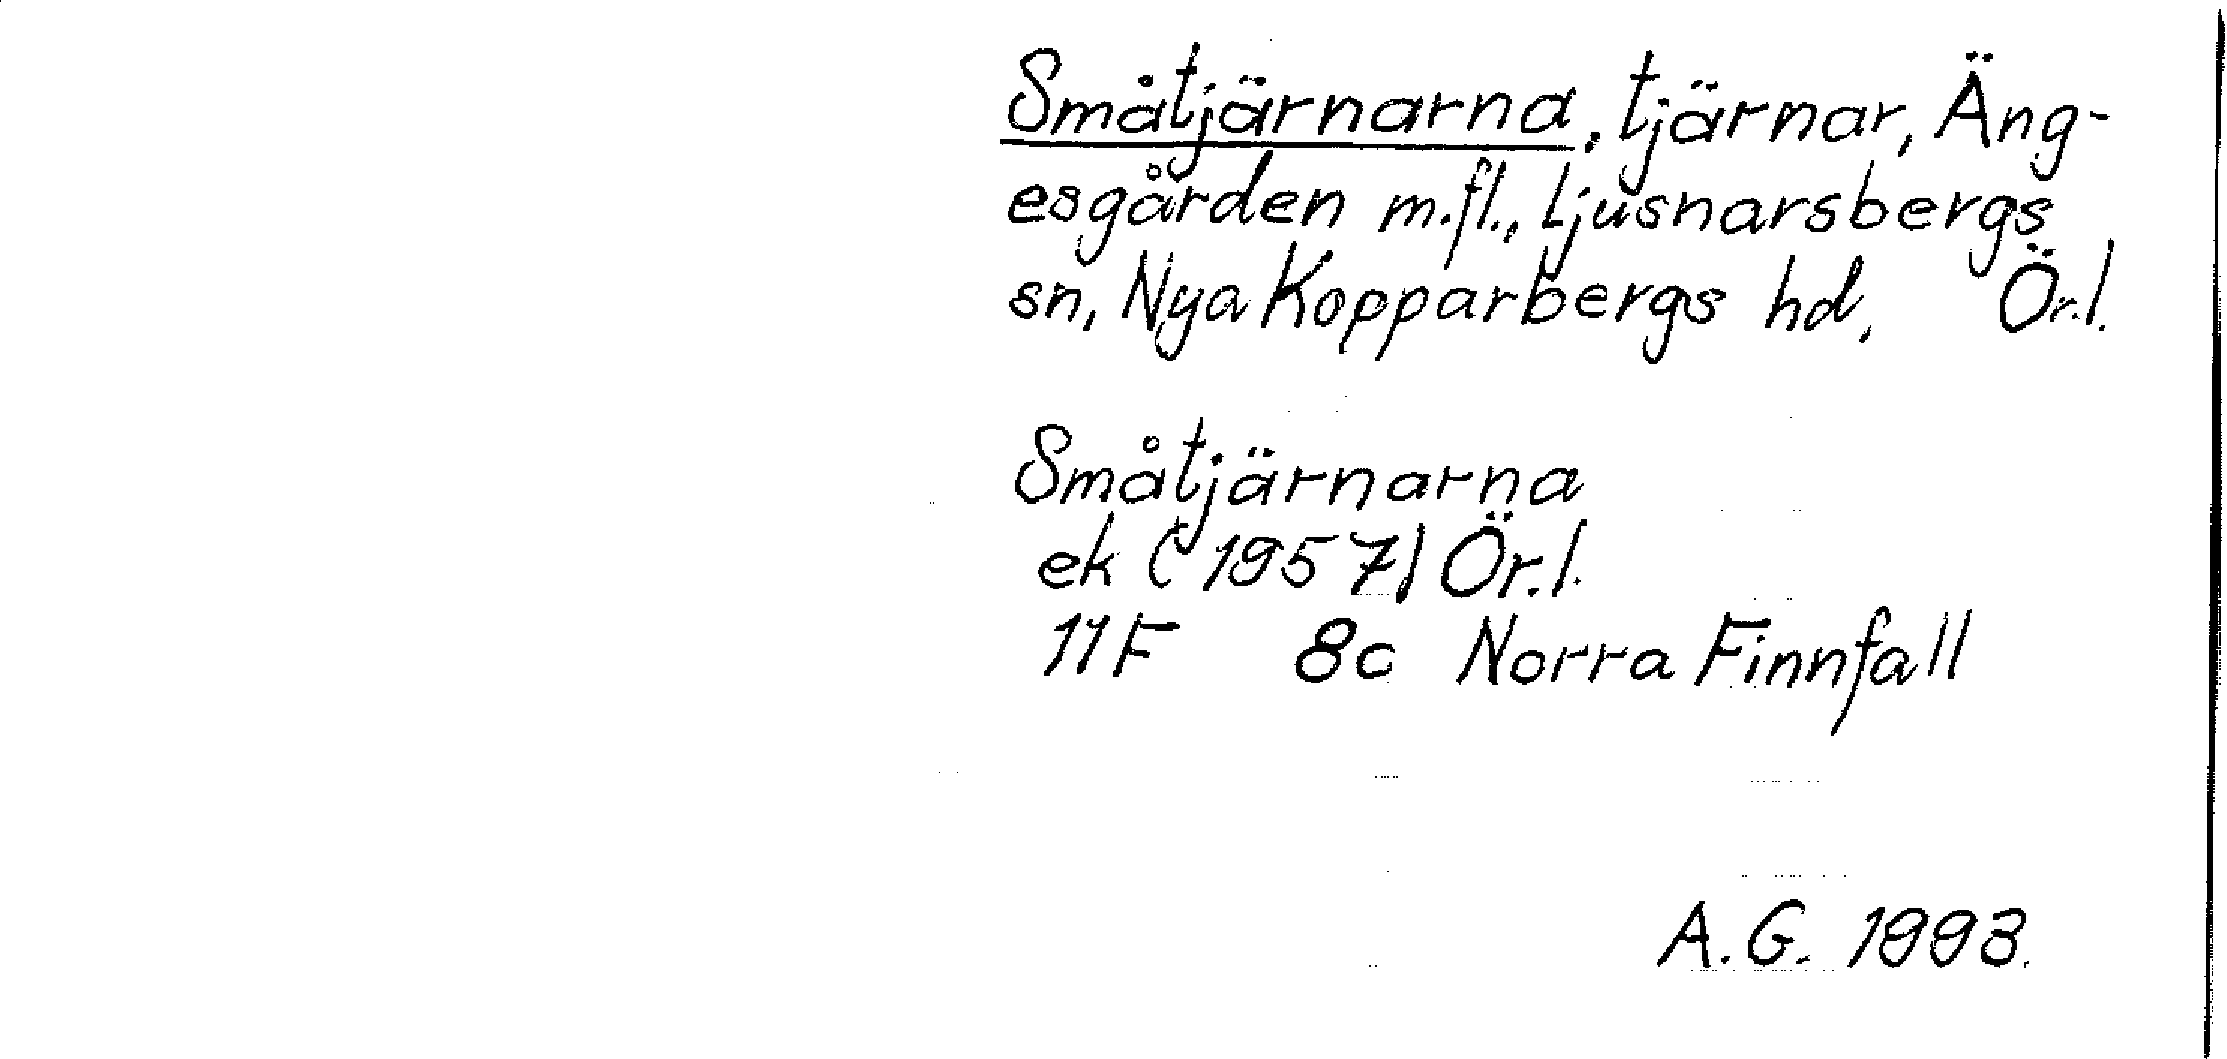 Småtjärnarna, tjärnar, Äng-
esgården m.fl., Ljusnarsbergs
sn, Nya Kopparbergs hd, Ör.l.
Småtjärnarna
ek (1957) Ör.l.
11F 8c Norra Finnfall
A.G. 1993.